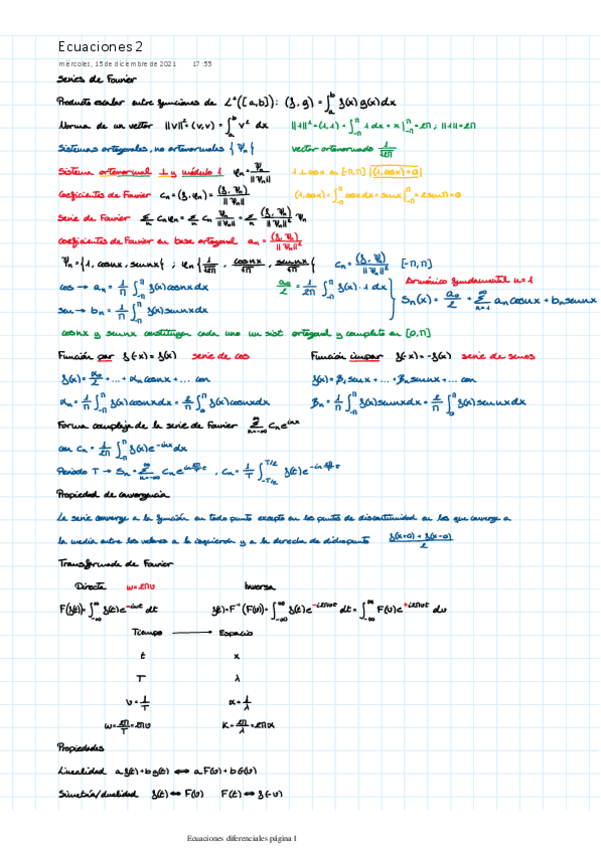 Ecuaciones 2
miércoles, 15 de diciembre de 2021 17:55
Series de Fourier
Producto escalar entre funciones de L²([a,b]): (f,g) = ∫_a^b f(x) g(x) dx
Norma de un vector ||v||² = (v,v) = ∫_a^b v² dx ||1||² = (1,1) = ∫_{-π}^{π} 1 dx = x|_{-π}^{π} = 2π; ||1|| = 2π
Sistemas ortogonales, no ortonormales {Ψn} vector ortonormado 1/√2π
Sistema ortonormal ⊥ y módulo 1 φn = Ψn/||Ψn|| 1 ⊥ cosx en [-π,π] [(1,cosx)=0]
Coeficientes de Fourier cn = (f,φn) = (f,Ψn)/||Ψn|| (1,cosx) = ∫_{-π}^{π} cosx dx = senx|_{-π}^{π} = 2senπ = 0
Serie de Fourier Σ cnφn = Σ cn Ψn/||Ψn|| = Σ (f,Ψn)/||Ψn||² Ψn
Coeficientes de Fourier en base ortogonal an = (f,Ψn)/||Ψn||²
Ψn = {1, cosnx, sennx}; φn {1/√2π, cosnx/√π, sennx/√π} cn = (f,Ψn)/||Ψn||² [-π,π]
cos → an = 1/π ∫_{-π}^{π} f(x) cosnx dx a0/2 = 1/2π ∫_{-π}^{π} f(x)·1 dx Armónico fundamental n=1
sen → bn = 1/π ∫_{-π}^{π} f(x) sennx dx Sn(x) = a0/2 + Σ_{n=1}^{∞} an cosnx + bn sennx
cosnx y sennx constituyen cada uno un sist ortogonal y completo en [0,π]
Función par f(-x) = f(x) serie de cos Función impar f(-x) = -f(x) serie de senos
f(x) = α0/2 + ... + αn cosnx + ... con f(x) = β1 senx + ... + βn sennx + ... con
αn = 1/π ∫_{-π}^{π} f(x) cosnx dx = 2/π ∫_0^π f(x) cosnx dx βn = 1/π ∫_{-π}^{π} f(x) sennx dx = 2/π ∫_0^π f(x) sennx dx
Forma compleja de la serie de Fourier Σ_{n=-∞}^{∞} cn e^{inx}
con cn = 1/2π ∫_{-π}^{π} f(x) e^{-inx} dx
Periodo T → Sn = Σ_{n=-∞}^{∞} cn e^{in 2π/T t}, cn = 1/T ∫_{-T/2}^{T/2} f(t) e^{-in 2π/T t}
Propiedad de convergencia
La serie converge a la función en todo punto excepto en los puntos de discontinuidad en los que converge a
la media entre los valores a la izquierda y a la derecha de dicho punto f(x+0) + f(x-0)/2
Transformada de Fourier
Directa w=2πν Inversa
F(f(t)) = ∫_{-∞}^{∞} f(t) e^{-iwt} dt f(t) = F⁻¹(F(ν)) = ∫_{-∞}^{∞} f(t) e^{-i2πνt} dt = ∫_{-∞}^{∞} F(ν) e^{+i2πνt} dν
Tiempo ⟶ Espacio
t x
T λ
ν = 1/T α = 1/λ
w = 2π/T = 2πν K = 2π/λ = 2πα
Propiedades
Linealidad a f(t) + b g(t) ⟺ a F(ν) + b G(ν)
Simetría/dualidad f(t) ⟺ F(ν) F(t) ⟺ f(-ν)
Ecuaciones diferenciales página 1